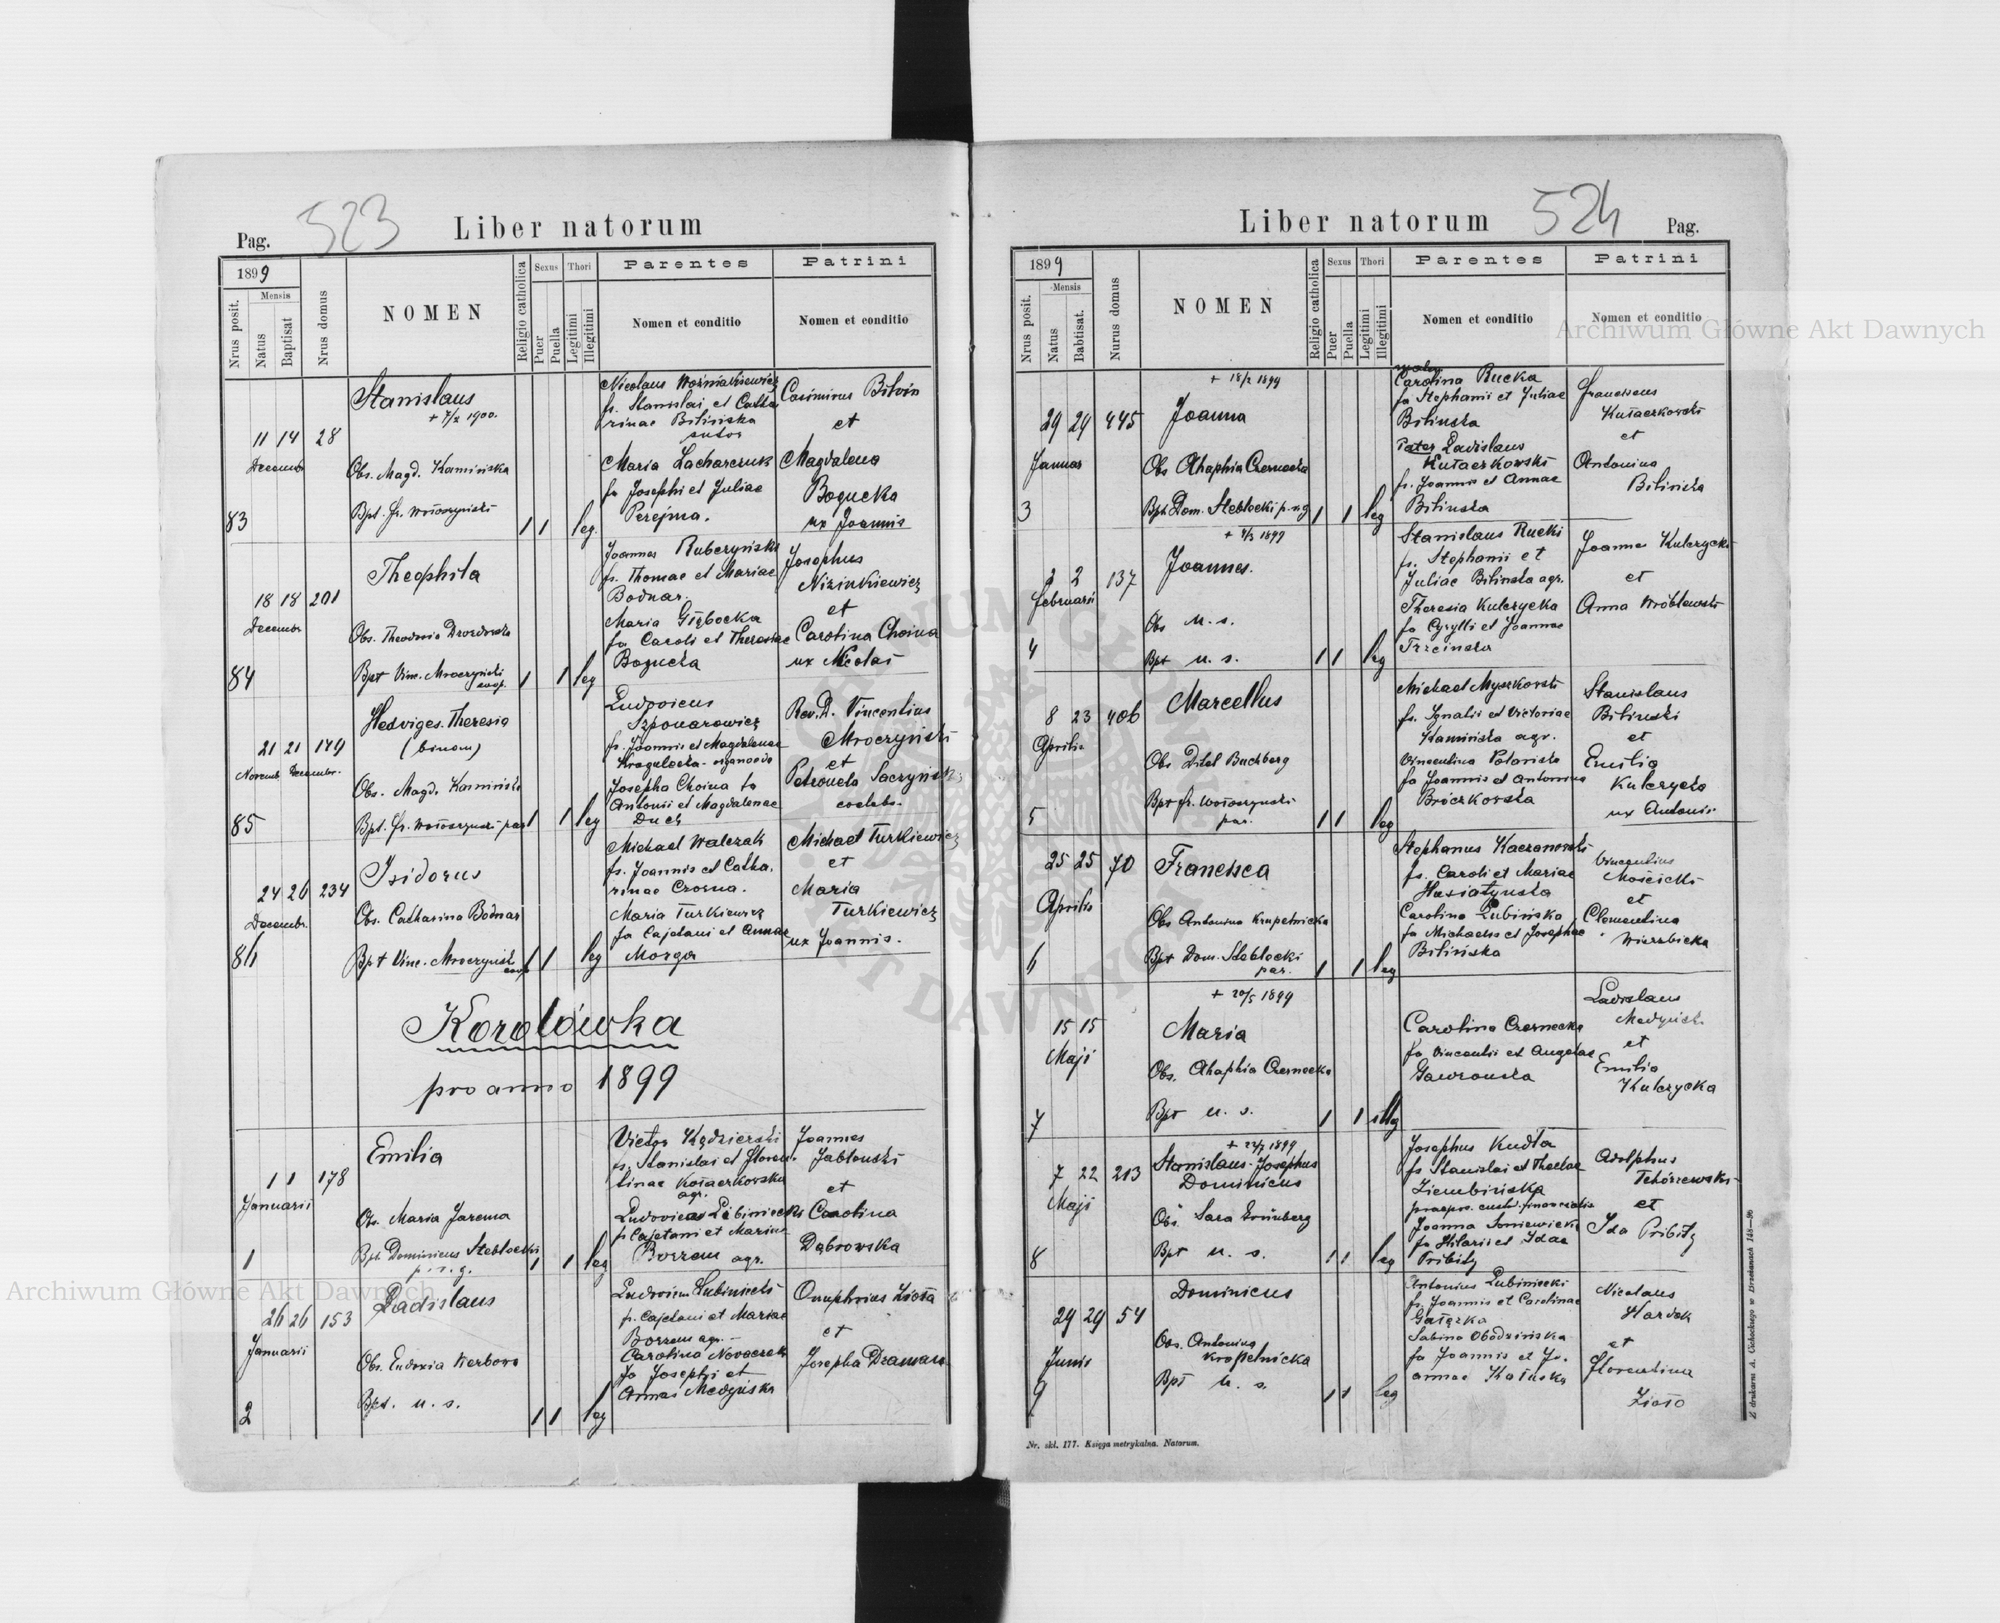 523
Liber natorum
Pag.
1899
Mensis
Nrus posit.
Natus
Baptisat
Nrus domus
NOMEN
Religio catholica
Sexus
Puer
Puella
Thori
Legitimi
Illegitimi
Parentes
Nomen et conditio
Patrini
Nomen et conditio
83
11 14 28
Decembr
Stanislaus
+ 7/2 1900.
Obs. Magd. Kamińska
Bpt. fr. Wołoszyński
1 1 leg.
Nicolaus Woźniakiewicz
fs. Stanislai et Catha
rinae Bilińska
sutor
Maria Zacharczuk
fa Josephi et Juliae
Perejma.
Casimirus Bilvin
et
Magdalena
Bogucka
ux Joannis
84
18 18 201
Decembr
Theophila
Obs. Theodosia Drozdowska
Bpt Vinc. Mroczyński
coop.
1 1 leg
Joannes Rubczyński
fs. Thomae et Mariae
Bodnar.
Maria Głębocka
fa Caroli et Theresiae
Bogucka
Josephus
Nizinkiewicz
et
Carolina Choina
ux Nicolai
85
21 21 179
Novemb Decembr.
Hedviges. Theresia
(binom)
Obs. Magd. Kamińska
Bpt. fr. Wołoszyński par
1 1 leg
Ludovicus
Szponarowicz
fs. Joannis et Magdalenae
Kragulecka - organoedo
Josepha Choina fa
Antonii et Magdalenae
Duch
Rev. D. Vincentius
Mroczyński
et
Petronela Saczyńska
coelebs.
86
24 26 234
Decembr.
Isidorus
Obs. Catharina Bodnar
Bpt Vinc. Mroczyński
coop
1 1 leg
Michael Walczak
fs. Joannis et Catha.
rinae Czorna.
Maria Turkiewicz
fa Cajetani et Annae
Morga
Michael Turkiewicz
et
Maria
Turkiewicz
ux Joannis.
Korolówka
pro anno 1899
1
1 1 178
Januarii
Emilia
Obs. Maria Jarema
Bpt. Dominicus Stebłocki
p. r. g.
1 1 leg
Victor Kędzierski
fs. Stanislai et Floren.
tinae Kołaczkowska
agr.
Ludovica Lubiniecki
fa Cajetani et Mariae
Borzem agr.
Joannes
Jabłoński
et
Carolina
Dąbrowska
2
26 26 153
Januarii
Ladislaus
Obs. Eudoxia Werbowa
Bpt. u. s.
1 1 leg
Ludovicus Lubiniecki
fs. Cajetani et Mariae
Borzem agr. -
Carolina Novaczek
fa Josephi et
Annae Medyńska
Onuphrius Zioła
et
Josepha Dramara
Liber natorum
524
Pag.
1899
Mensis
Nrus posit.
Natus
Babtisat.
Nurus domus
NOMEN
Religio catholica
Sexus
Puer
Puella
Thori
Legitimi
Illegitimi
Parentes
Nomen et conditio
Patrini
Nomen et conditio
3
29 29 445
Januar
+ 18/2 1899
Joanna
Obs Ahaphia Czernecka
Bpt. Dom. Stebłocki p. r. g
1 1 leg
mater
Carolina Rucka
fa Stephanii et Juliae
Bilinska
Pater Ladislaus
Kułaczkowski
fs. Joannis et Annae
Bilinska
Franciscus
Kułaczkowski
et
Antonina
Bilińska
4
2 2 137
Februarii
+ 4/3 1899
Joannes.
Obs u. s.
Bpt u. s.
1 1 leg
Stanislaus Rucki
fs. Stephanii et
Juliae Bilinska agr.
Theresia Kulczycka
fa Cyrylli et Joannae
Trzcinska
Joannes Kulczycki
et
Anna Wróblewska
5
8 23 406
Aprilis
Marcellus
Obs Ditel Buchberg
Bpt fr. Wołoszynski
par.
1 1 leg
Michael Myszkowski
fs. Ignatii et Victoriae
Kamińska agr.
Vincentina Polańska
fa Joannis et Antonina
Broczkowska
Stanislaus
Biliński
et
Emilia
Kulczycka
ux Antonii
6
25 25 70
Aprilis
Francisca
Obs Antonina Krupelnicka
Bpt Dom. Stebłocki
par.
1 1 leg
Stephanus Kaczanowski
fs. Caroli et Mariae
Husiatyńska
Carolina Lubińska
fa Michaelis et Josephae
Bilińska
Vincentius
Mościcki
et
Clementina
Wierzbicka
7
15 15
Maji
+ 20/5 1899
Maria
Obs. Ahaphia Czernecka
Bpt u. s.
1 1 illeg
Carolina Czernecka
fa Vincentii et Angelae
Gawrońska
Ladislaus
Medyński
et
Emilia
Kulczycka
8
7 22 213
Maji
+ 22/7 1899
Stanislaus-Josephus
Dominicus
Obs. Sara Grünberg
Bpt u. s.
1 1 leg
Josephus Kudła
fs. Stanislai et Theclae
Ziembińska
praepos. custod. financialis
Joanna
fa Hilarii et Idae
Pribitz
Adolphus
Tchórzewski
et
Ida Pribitz
9
29 29 54
Junis
Dominicus
Obs. Antonina
Kropelnicka
Bpt u. s.
1 1 leg
Antonius Lubiniecki
fs. Joannis et Carolinae
Gałęzka
Sabina Obodzińska
fa Joannis et Jo.
annae Kałuska
Nicolaus
Hardek
et
Florentina
Zioło
Nr. skł. 177. Księga metrykalna. Natorum.
Z drukarna A. Cichockiego w Brzeżanach 148—96
Archiwum Główne Akt Dawnych
Archiwum Główne Akt Dawnych